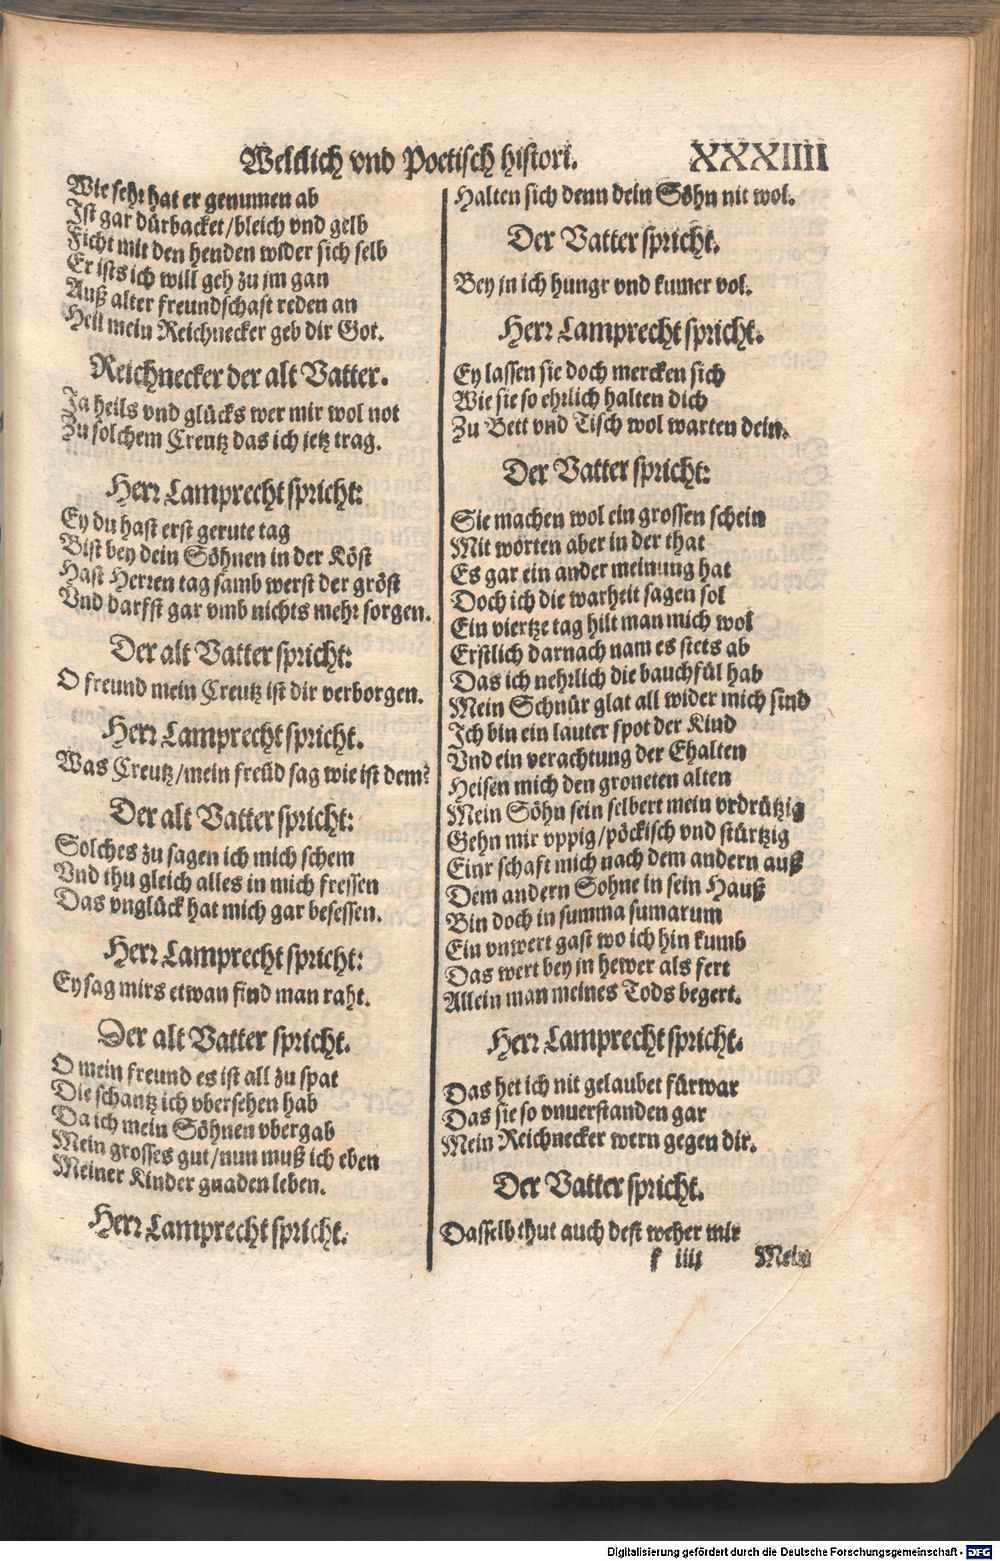 Weltlich vnd Poetisch histori. XXXIIII
Wie sehr hat er genumen ab
Ist gar dürbacket/bleich vnd gelb
Ficht mit den henden wider sich selb
Er ists ich will geh zu jm gan
Auß alter freundschaft reden an
Heil mein Reichnecker geb dir Got.
Reichnecker der alt Vatter.
Ja heils vnd glücks wer mir wol not
Zu solchem Creutz das ich jetz trag.
Herr Lamprecht spricht:
Ey du hast erst gerute tag
Bist bey dein Söhnen in der Köst
Hast Herren tag samb werst der gröst
Vnd darfst gar vmb nichts mehr sorgen.
Der alt Vatter spricht:
O freund mein Creutz ist dir verborgen.
Herr Lamprecht spricht.
Was Creutz/mein freüd sag wie ist dem?
Der alt Vatter spricht:
Solches zu sagen ich mich schem
Vnd thu gleich alles in mich fressen
Das vnglück hat mich gar besessen.
Herr Lamprecht spricht:
Ey sag mirs etwan find man raht.
Der alt Vatter spricht.
O mein freund es ist all zu spat
Die schantz ich vbersehen hab
Da ich mein Söhnen vbergab
Mein grosses gut/nun muß ich eben
Meiner Kinder gnaden leben.
Herr Lamprecht spricht.
Halten sich denn dein Söhn nit wol.
Der Vatter spricht.
Bey jn ich hungr vnd kumer vol.
Herr Lamprecht spricht.
Ey lassen sie doch mercken sich
Wie sie so ehrlich halten dich
Zu Bett vnd Tisch wol warten dein.
Der Vatter spricht:
Sie machen wol ein grossen schein
Mit worten aber in der that
Es gar ein ander meinung hat
Doch ich die warheit sagen sol
Ein viertze tag hilt man mich wol
Erstlich darnach nam es stets ab
Das ich nehrlich die bauchfül hab
Mein Schnür glat all wider mich sind
Ich bin ein lauter spot der Kind
Vnd ein verachtung der Ehalten
Heisen mich den groneten alten
Mein Söhn sein selbert mein vrdrützig
Gehn mir vppig/pöckisch vnd stürtzig
Einr schaft mich nach dem andern auß
Dem andern Sohne in sein Hauß
Bin doch in summa sumarum
Ein vnwert gast wo ich hin kumb
Das wert bey jn hewer als fert
Allein man meines Tods begert.
Herr Lamprecht spricht.
Das het ich nit gelaubet fürwar
Das sie so vnuerstanden gar
Mein Reichnecker wern gegen dir.
Der Vatter spricht.
Dasselb thut auch dest weher mir
f iiii Mein
Digitalisierung gefördert durch die Deutsche Forschungsgemeinschaft - DFG